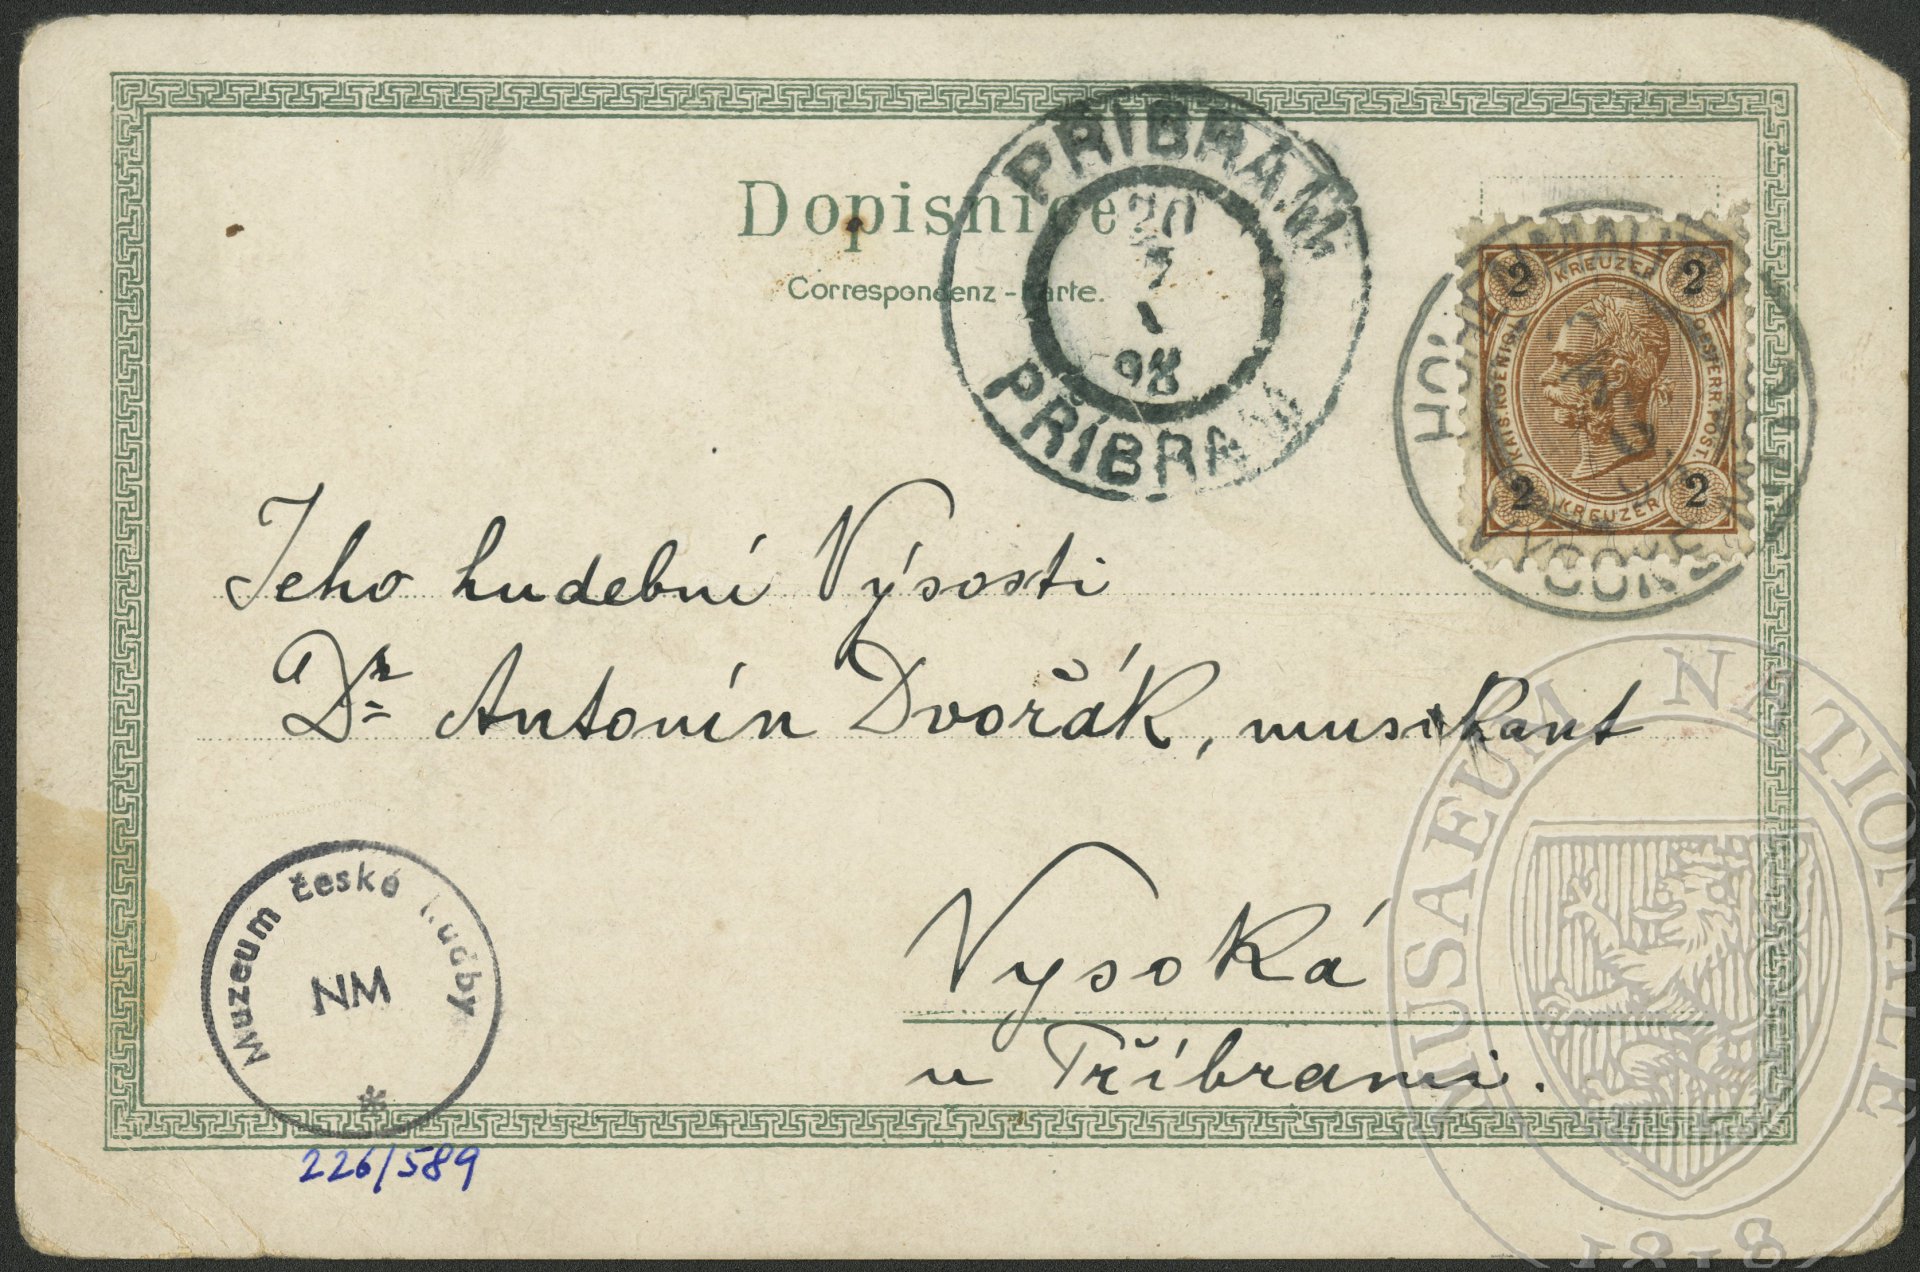 Dopisnice
Correspondenz-Karte.
PŘIBRAM
20
7
98
PŘÍBRAM
2 KREUZER 2
KAIS. KOENIGL. OESTERR. POST.
2 KREUZER 2
Jeho hudební Výsosti
Dr. Antonín Dvořák, musikant
Vysoká
u Příbrami.
Muzeum české hudby
NM
*
226/589
MUSAEUM NATIONALE
1818